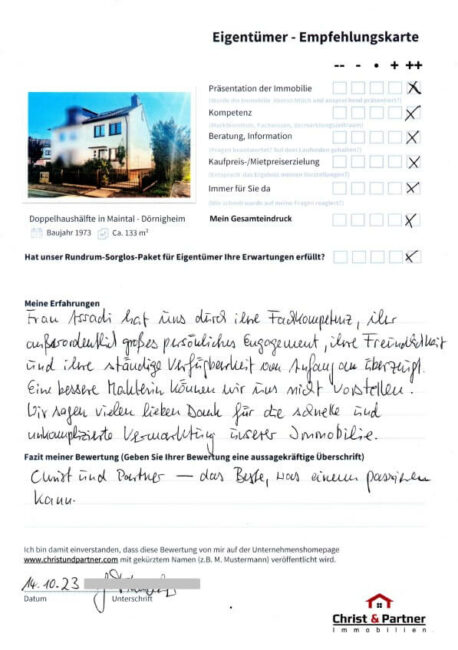 Eigentümer - Empfehlungskarte
-- - • + ++
Präsentation der Immobilie
Kompetenz
Beratung, Information
Kaufpreis-/Mietpreiserzielung
Immer für Sie da
Mein Gesamteindruck
Doppelhaushälfte in Maintal - Dörnigheim
Baujahr 1973 Ca. 133 m²
Hat unser Rundrum-Sorglos-Paket für Eigentümer Ihre Erwartungen erfüllt?
Meine Erfahrungen
Frau Assadi hat uns durch ihre Fachkompetenz, ihr
außerordentlich großes persönliches Engagement, ihre Freundlichkeit
und ihre ständige Verfügbarkeit von Anfang an überzeugt.
Eine bessere Maklerin können wir uns nicht vorstellen.
Wir sagen vielen lieben Dank für die schnelle und
unkomplizierte Vermarktung unserer Immobilie.
Fazit meiner Bewertung (Geben Sie Ihrer Bewertung eine aussagekräftige Überschrift)
Christ und Partner — das Beste, was einem passieren
kann.
Ich bin damit einverstanden, dass diese Bewertung von mir auf der Unternehmenshomepage
www.christundpartner.com mit gekürztem Namen (z.B. M. Mustermann) veröffentlicht wird.
14.10.23
Datum Unterschrift
Christ & Partner
Immobilien